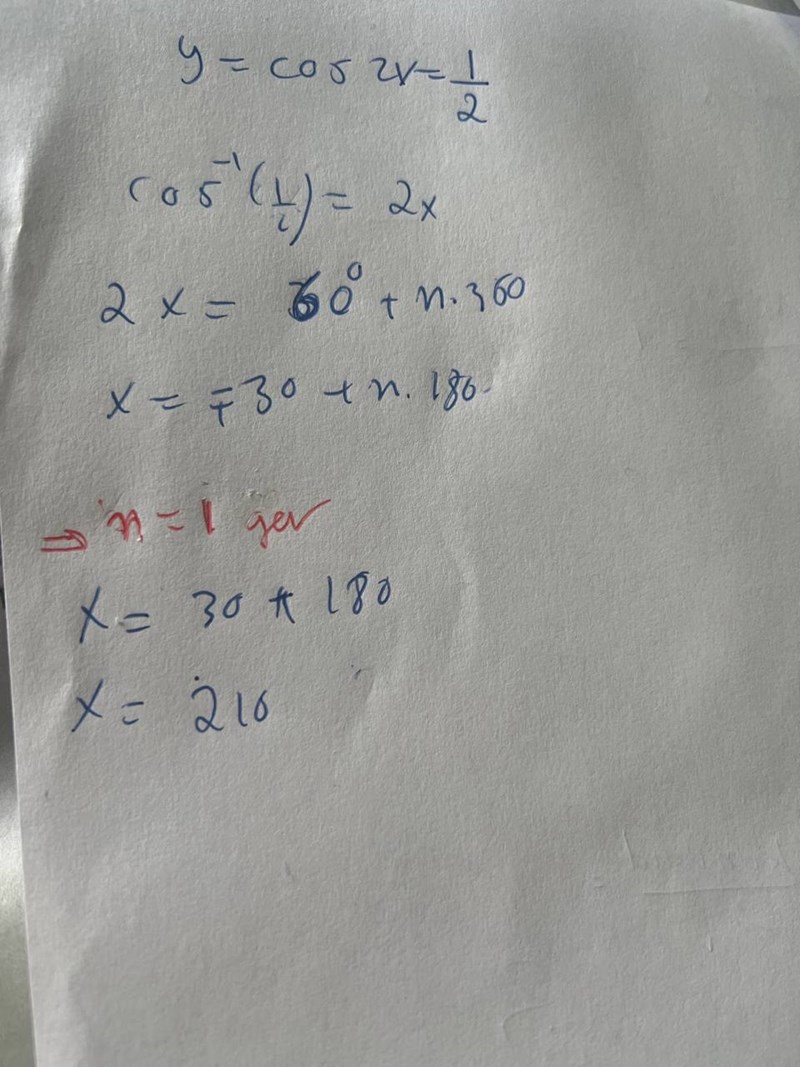 y = cos 2x = 1/2
cos⁻¹(1/2) = 2x
2x = 60° + n·360
x = ∓30 + n·180
⇒ n = 1 ger
x = 30 + 180
x = 210